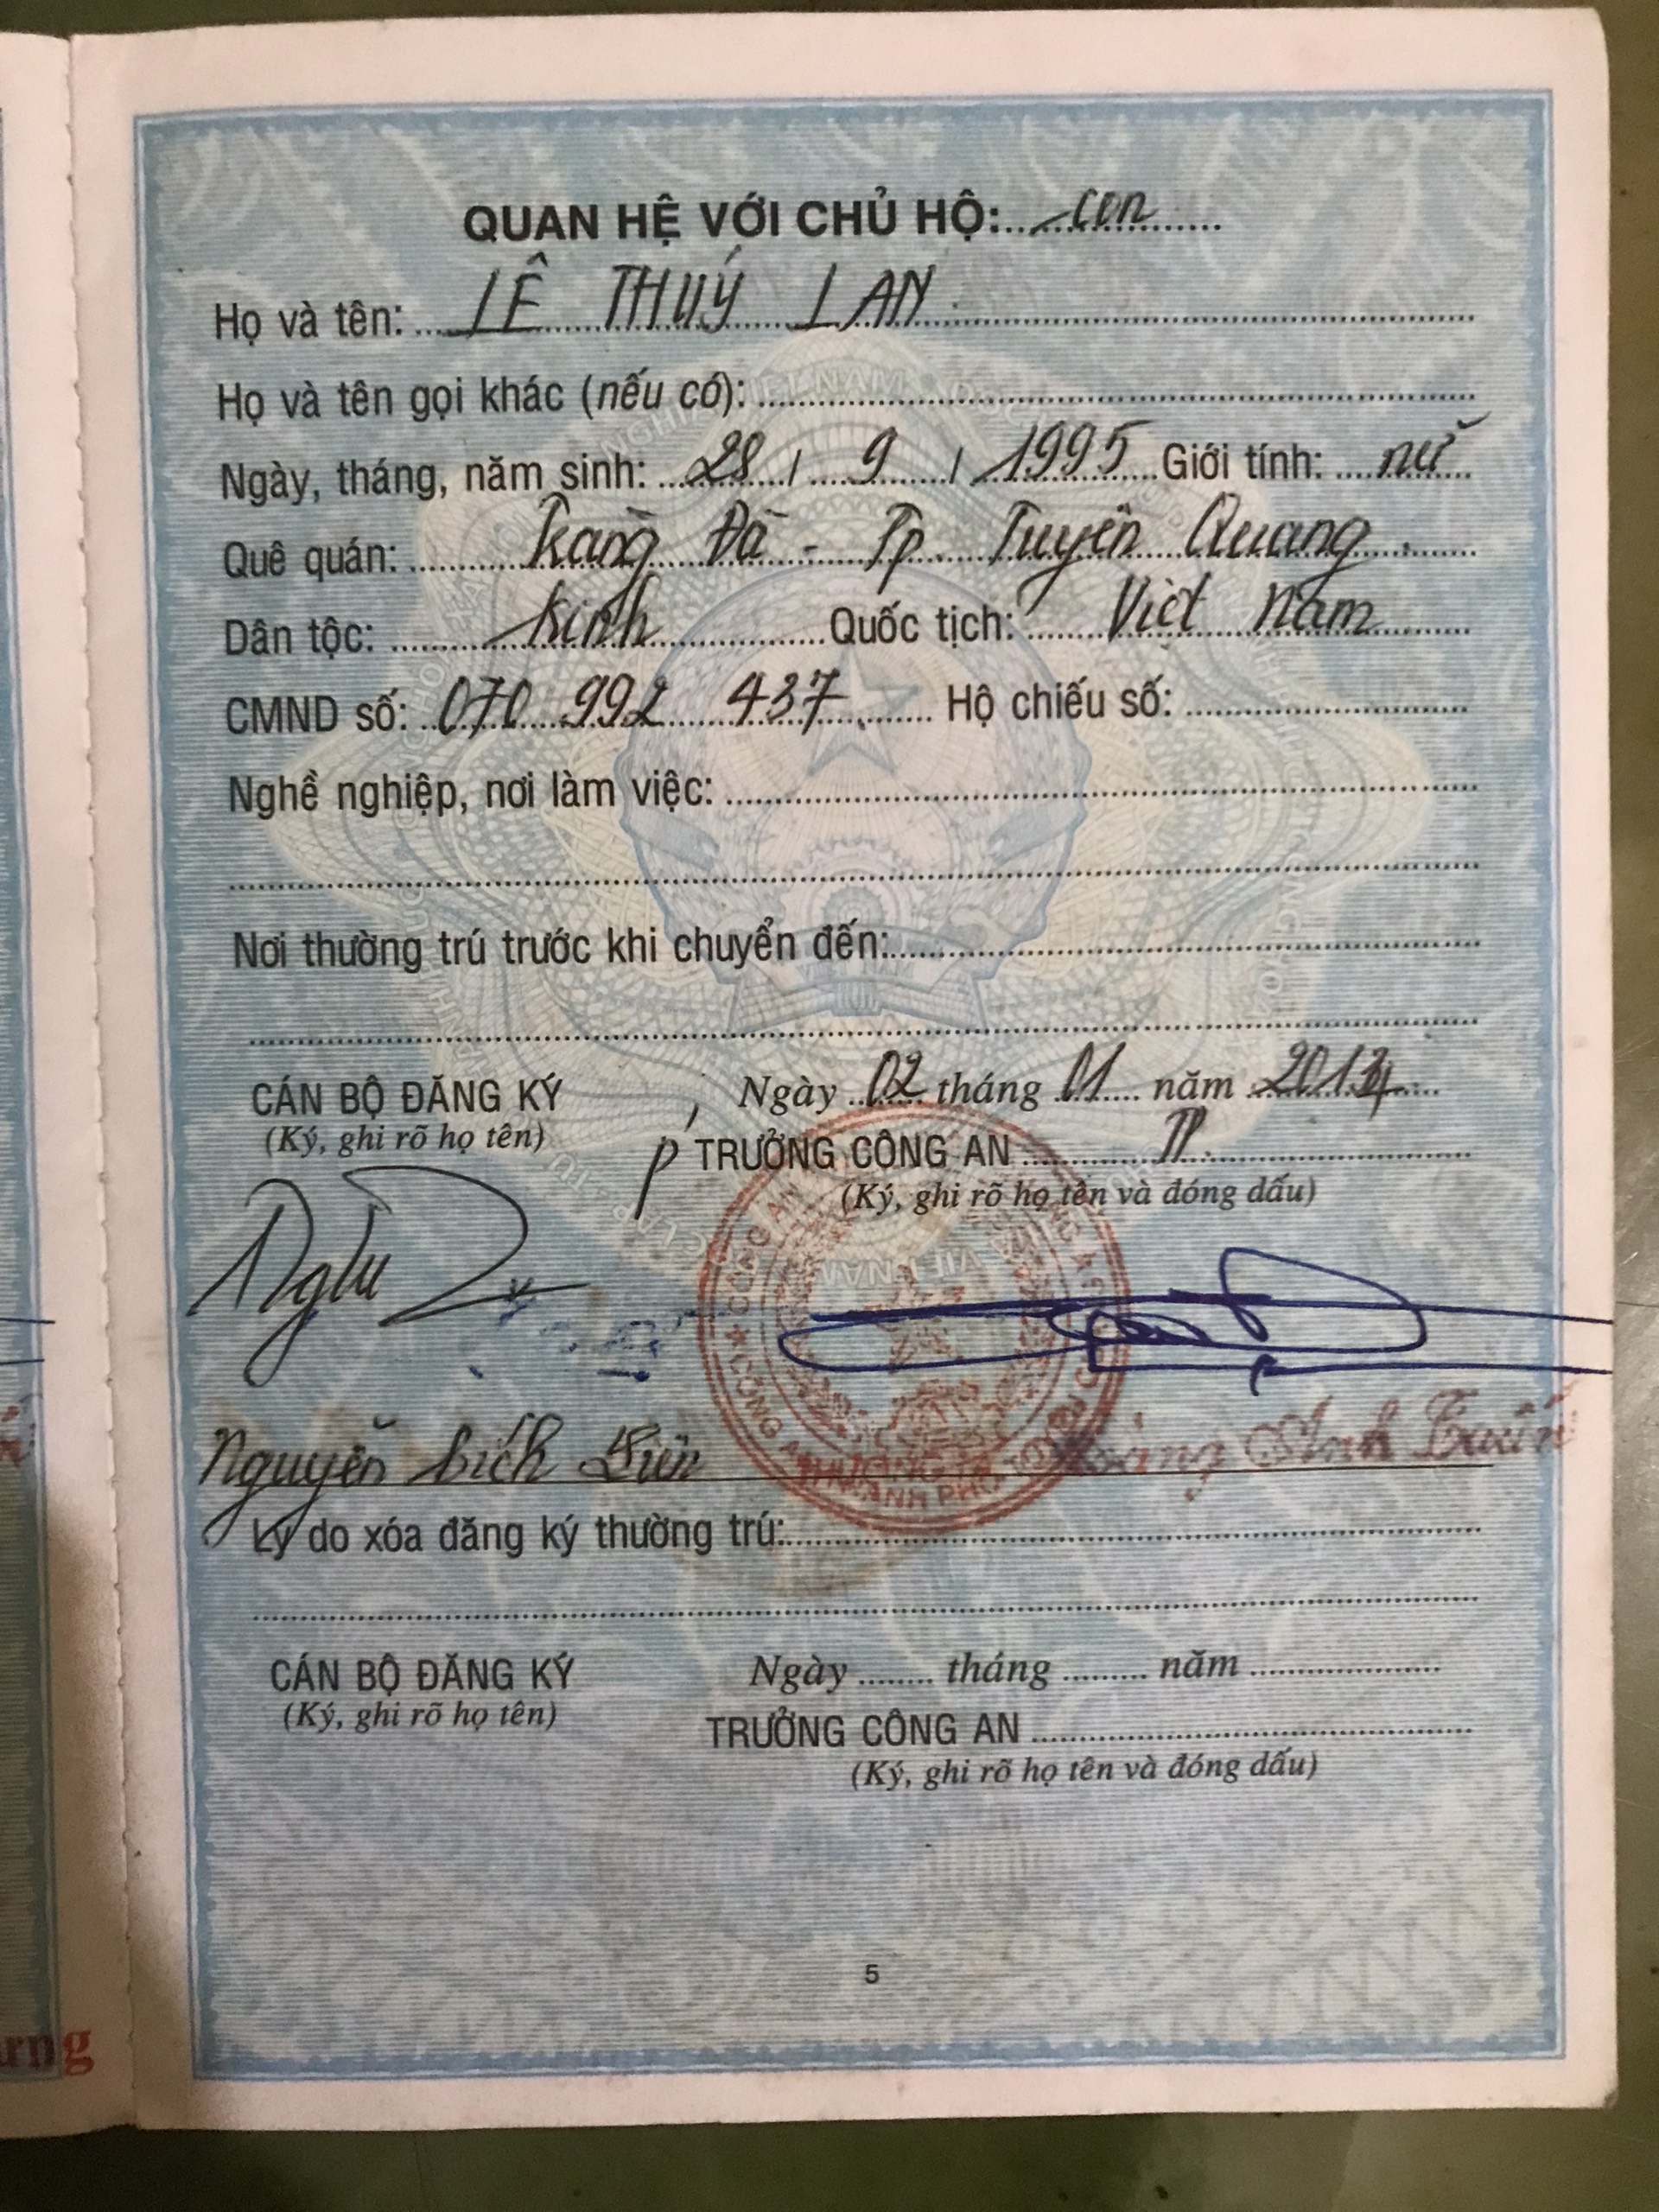 QUAN HỆ VỚI CHỦ HỘ: con
Họ và tên: LÊ THUÝ LAN
Họ và tên gọi khác (nếu có):
Ngày, tháng, năm sinh: 28 / 9 / 1995 Giới tính: nữ
Quê quán: Tràng Đà - Tp. Tuyên Quang
Dân tộc: Kinh Quốc tịch: Việt Nam
CMND số: 070 992 437 Hộ chiếu số:
Nghề nghiệp, nơi làm việc:
Nơi thường trú trước khi chuyển đến:
CÁN BỘ ĐĂNG KÝ Ngày 02 tháng 01 năm 2014
(Ký, ghi rõ họ tên) P TRƯỞNG CÔNG AN TP
(Ký, ghi rõ họ tên và đóng dấu)
Nguyễn Bích Hoàng Anh
Lý do xóa đăng ký thường trú:
CÁN BỘ ĐĂNG KÝ Ngày tháng năm
(Ký, ghi rõ họ tên) TRƯỞNG CÔNG AN
(Ký, ghi rõ họ tên và đóng dấu)
5